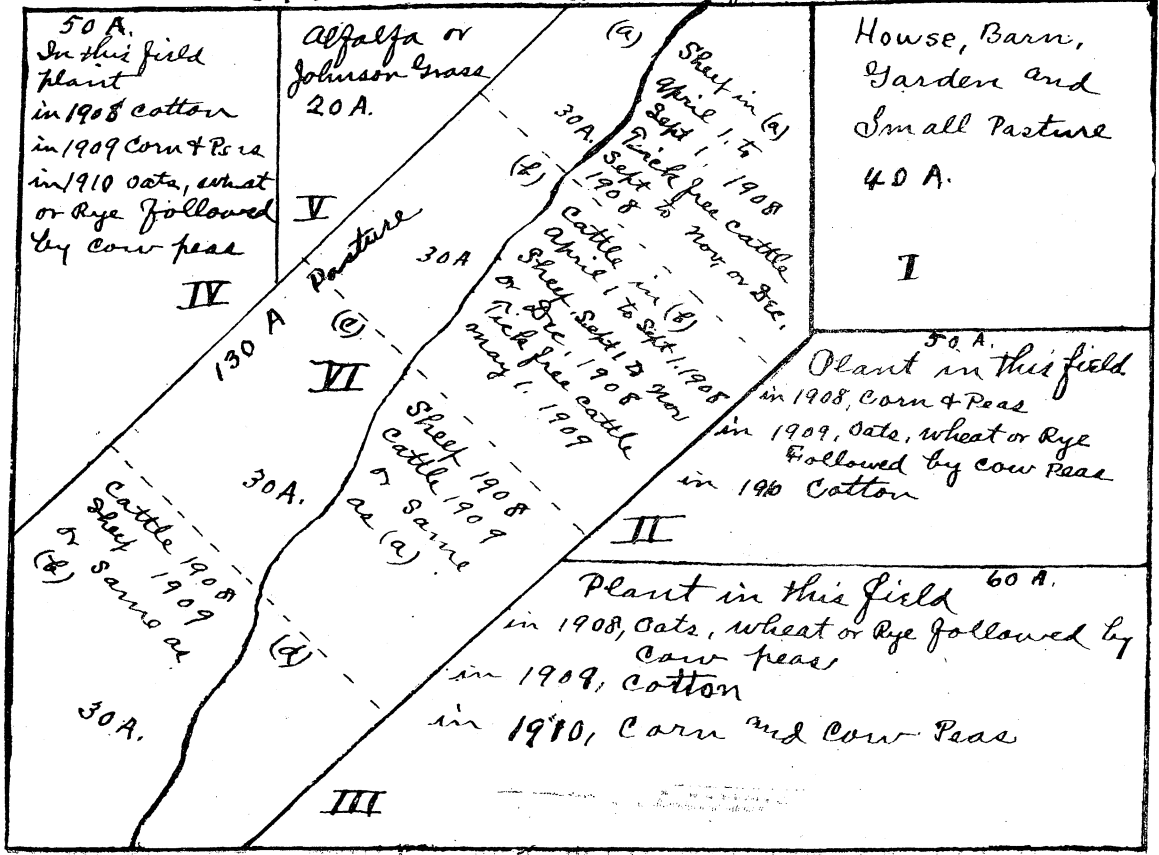 50 A.
In this field
plant
in 1908 Cotton
in 1909 Corn & Peas
in 1910 Oats, wheat
or Rye followed
by cow peas
IV
Alfalfa or
Johnson Grass
20 A.
V
130 A Pasture
VI
(a)
30 A.
Sheep in (a)
April 1, to
Sept 1, 1908
Tick free cattle
Sept to Nov, or Dec,
1908
(b)
30 A
Cattle in (b)
April 1 to Sept 1, 1908
Sheep, Sept 1 to Nov
or Dec, 1908
Tick free cattle
may 1, 1909
(c)
30 A.
Sheep 1908
Cattle 1909
or Same
as (a).
(d)
Cattle 1908
Sheep 1909
or Same as
(b)
30 A.
House, Barn,
Garden and
Small Pasture
40 A.
I
50 A.
Plant in this field
in 1908, Corn & Peas
in 1909, Oats, wheat or Rye
Followed by cow Peas
in 1910 Cotton
II
60 A.
Plant in this field
in 1908, Oats, wheat or Rye followed by
Cow peas
in 1909, Cotton
in 1910, Corn and Cow Peas
III